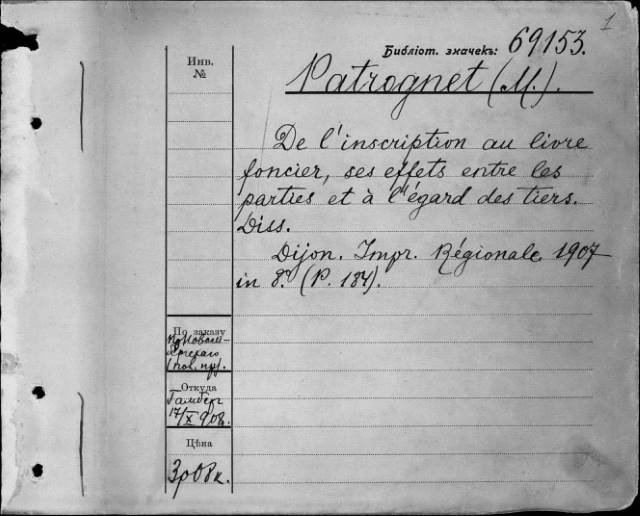 1
Библіот. значекъ: 69153.
Инв.
№
Patrognet (M.).
De l'inscription au livre
foncier, ses effets entre les
parties et à l'égard des tiers.
Diss.
Dijon. Impr. Régionale 1907
in 8º. (P. 184).
По заказу
Откуда
Гамберг
17/X 908.
Цѣна
3р08к.